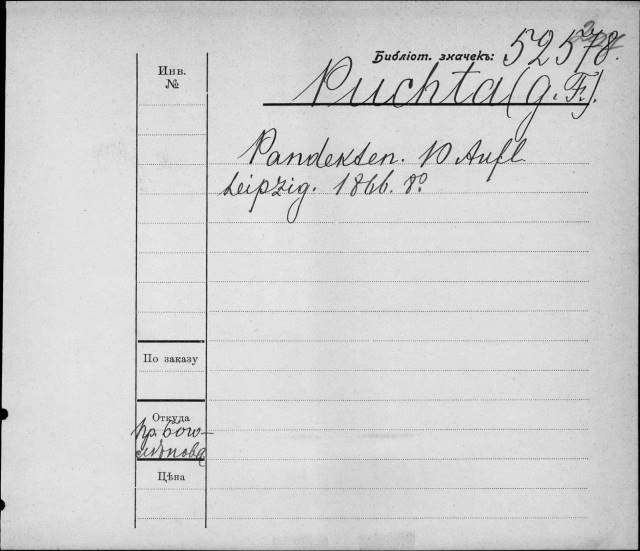 Библіот. значекъ: 52578.
Инв.
№
Puchta (G. F.).
Pandekten. 10 Aufl.
Leipzig. 1866. 8º
По заказу
Откуда
Цѣна